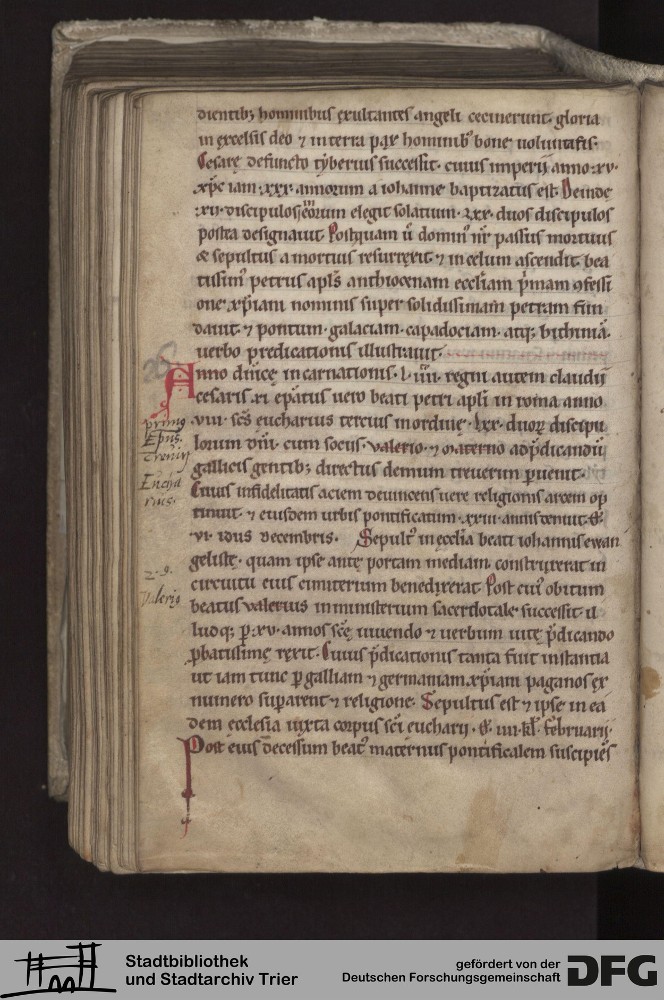 dientib; hominibus exultantes angeli cecinerunt. gloria
in excelsis deo ⁊ in terra pax hominib' bonę uoluntatis.
Cesarę defuncto tyberius successit. cuius imperii anno .xv.
xp̄c iam .xxx. annorum a iohanne baptizatus est. Deinde
.xii. discipulos eorum elegit solatium .lxx. duos discipulos
postea designauit. Postquam u̅ domin' nr̄ passus mortuus
& sepultus a mortuis resurrexit. ⁊ in celum ascendit. bea
tissim' petrus apl̄s anthiocenam eccl̄iam p̄mam ɔfessi
one xp̄iani nominis super solidissimam petram fun
dauit. ⁊ pontum. galaciam. capadociam. atq; bithiniā.
uerbo predicationis illustrauit.
Anno dn̄icę incarnationis .l.iiii. regni autem claudii
cesaris .xi. ep̄atus uero beati petri apl̄i in roma anno
.viii. sc̄s eucharius tercius in ordinę .lxx. duorꝝ discipu
lorum dn̄i. cum sociis. valerio. ⁊ materno ad p̄dicandū
gallicis gentib; directus demum treuerim ꝑuenit.
Cuius infidelitatis aciem deuincens uere religionis arcem op
tinuit. ⁊ eiusdem urbis pontificatum .xxiii. annis tenuit. &
.vi. idus decembris. Sepult' in ecclīa beati iohannis ewan
gelistę. quam ipse antę portam mediam construxerat in
circuitu eius cimiterium benedixerat. Post cui' obitum
beatus valerius in ministerium sacerdotale successit. il
ludq; ꝑ .xv. annos sc̄ę uiuendo ⁊ uerbum uitę p̄dicando
ꝓbatissimę rexit. Cuius p̄dicationis tanta fuit instantia
ut iam tunc ꝑ galliam ⁊ germaniam xp̄iani paganos ex
numero suparent ⁊ religione. Sepultus est ⁊ ipse in ea
dem ecclesia iuxta corpus sc̄i eucharii. & .iiii. kl̄. februarii.
Post eius decessum beat' maternus pontificalem suscipiēs
primꝯ
Epūs.
Treuirꝫ
Eucha
rius.
2. 9.
Valeriꝯ
Stadtbibliothek
und Stadtarchiv Trier
gefördert von der
Deutschen Forschungsgemeinschaft
DFG